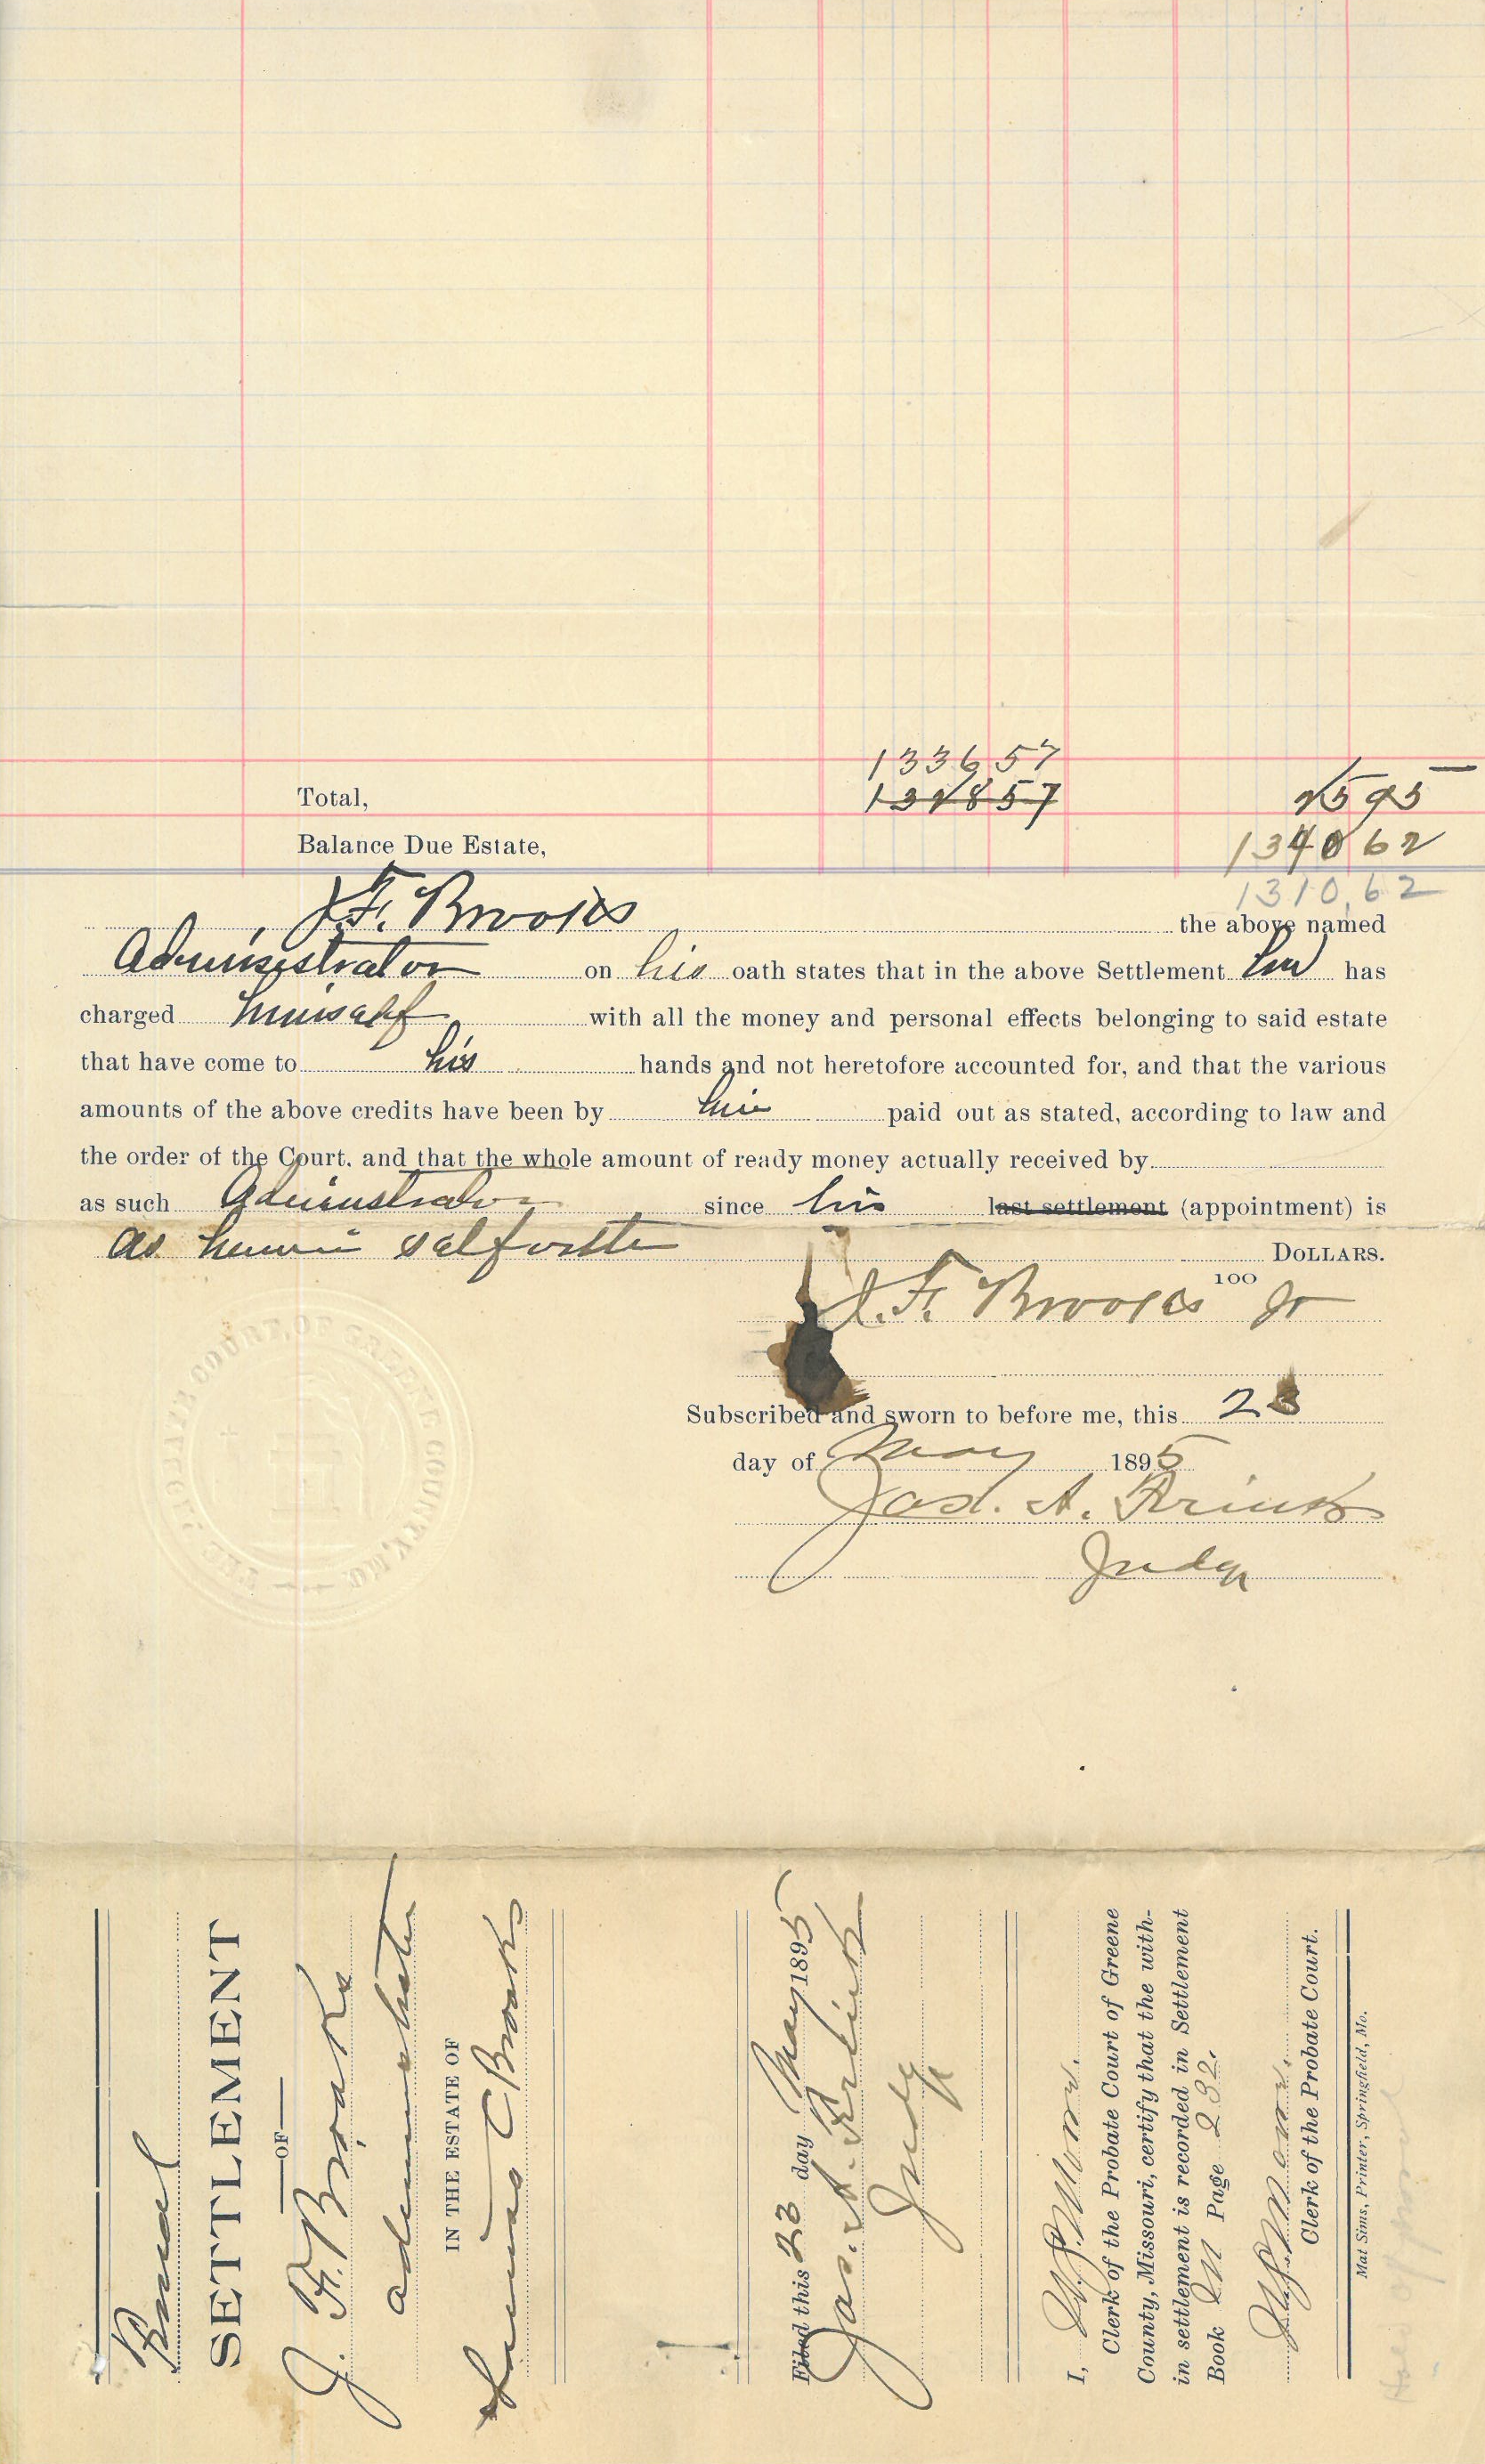 133657
Total, 131857 2595
Balance Due Estate, 134062
1310.62
J. F. Brooks the above named
Administrator on his oath states that in the above Settlement he has
charged himself with all the money and personal effects belonging to said estate
that have come to his hands and not heretofore accounted for, and that the various
amounts of the above credits have been by him paid out as stated, according to law and
the order of the Court. and that the whole amount of ready money actually received by
as such Administrator since his last settlement (appointment) is
as herein setforth DOLLARS.
100
J. F. Brooks Jr
Subscribed and sworn to before me, this 23
day of May 1895
Jas. A. Frink
Judge
THE PROBATE COURT OF GREENE COUNTY, MO.
Final
SETTLEMENT
OF
J. F. Brooks
administrator
IN THE ESTATE OF
C Brooks
Filed this 23 day May 1895
Jas. A. Frink
Judge
I,
Clerk of the Probate Court of Greene
County, Missouri, certify that the with-
in settlement is recorded in Settlement
Book M Page 232.
Clerk of the Probate Court.
Mat Sims, Printer, Springfield, Mo.